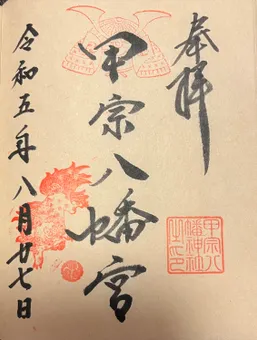 奉拝
甲宗八幡宮
令和五年八月廿七日
甲宗八
幡神社
之印